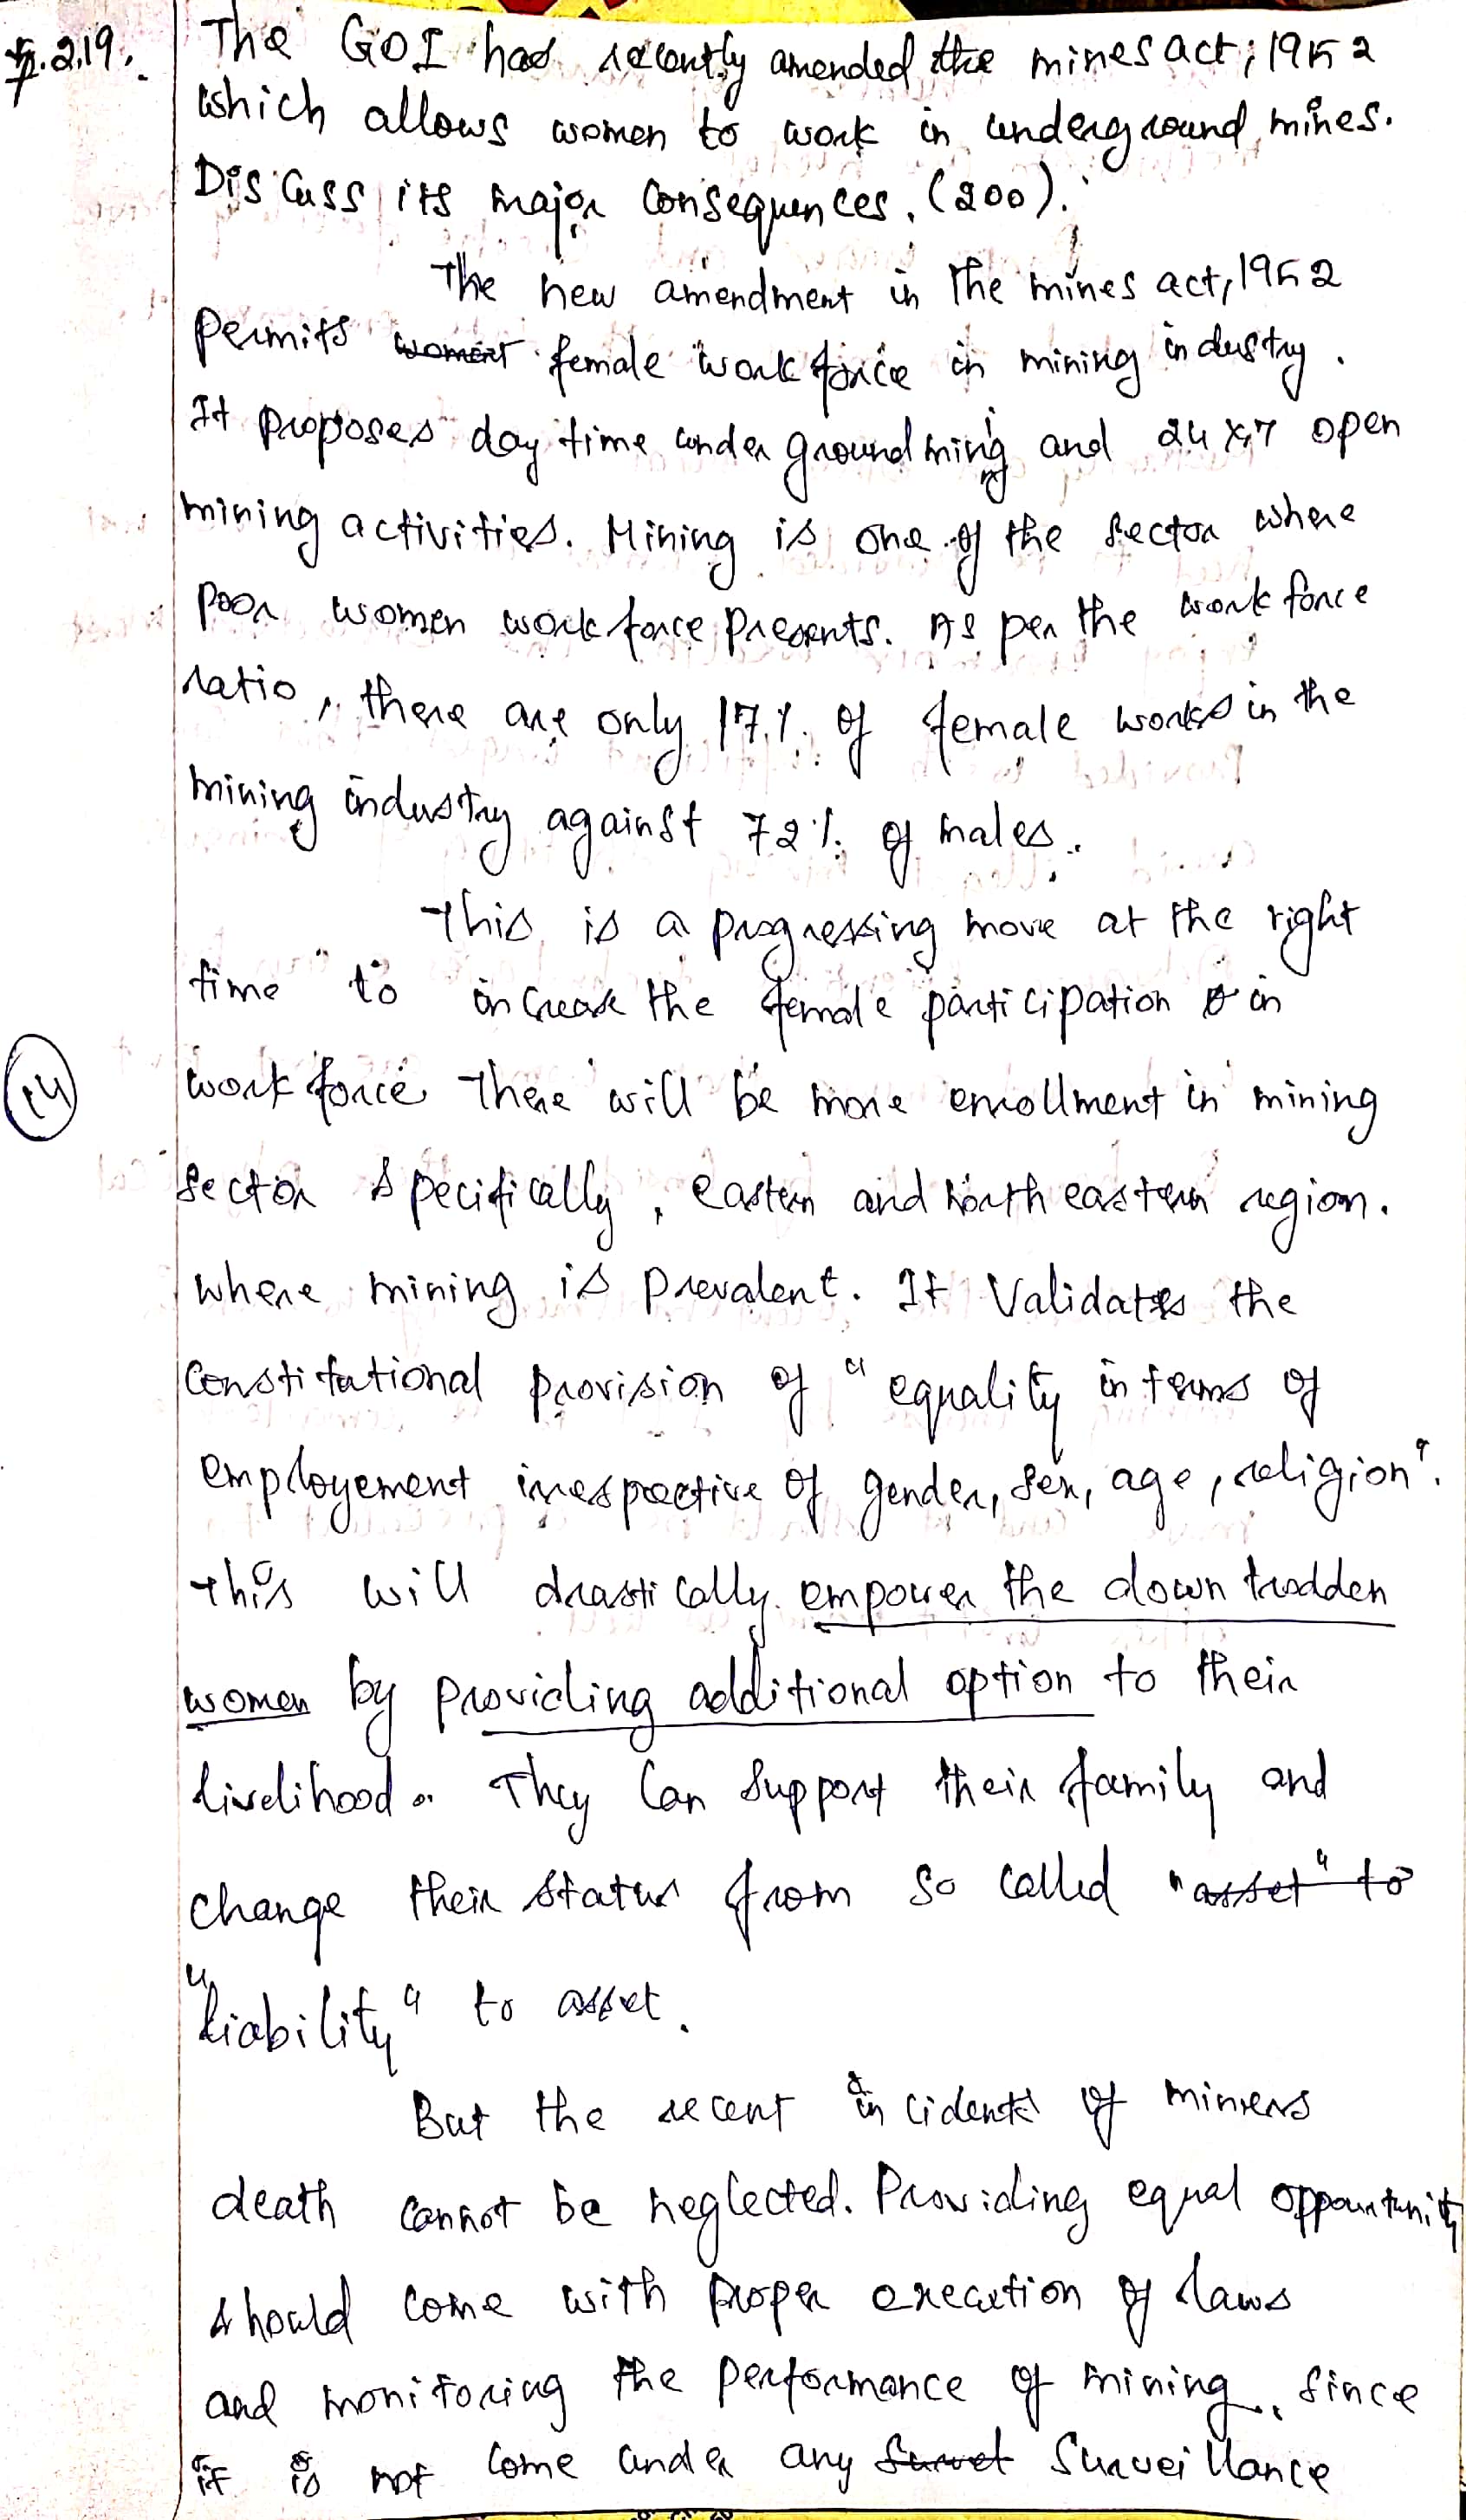 2.19. The GOI had recently amended the mines act, 1952
which allows women to work in underground mines.
Discuss its major Consequences. (200).
The new amendment in the mines act, 1952
permits women female work force in mining industry.
It proposes day time under ground mining and 24x7 open
mining activities. Mining is one of the sector where
poor women work force presents. As per the work force
ratio, there are only 17% of female works in the
mining industry against 72% of males.
This is a progressing move at the right
time to increase the female participation in
work force. There will be more enrollment in mining
sector specifically, eastern and north eastern region.
where mining is prevalent. It Validates the
Constitutional provision of "equality in terms of
employement irrespective of gender, sex, age, religion".
14
This will drastically empower the down trodden
women by providing additional option to their
livelihood. They can support their family and
change their status from so called "asset" to
"liability" to asset.
But the recent incidents of miners
death cannot be neglected. Providing equal opportunity
should come with proper execution of laws
and monitoring the performance of mining. Since
it is not come under any Surveillance